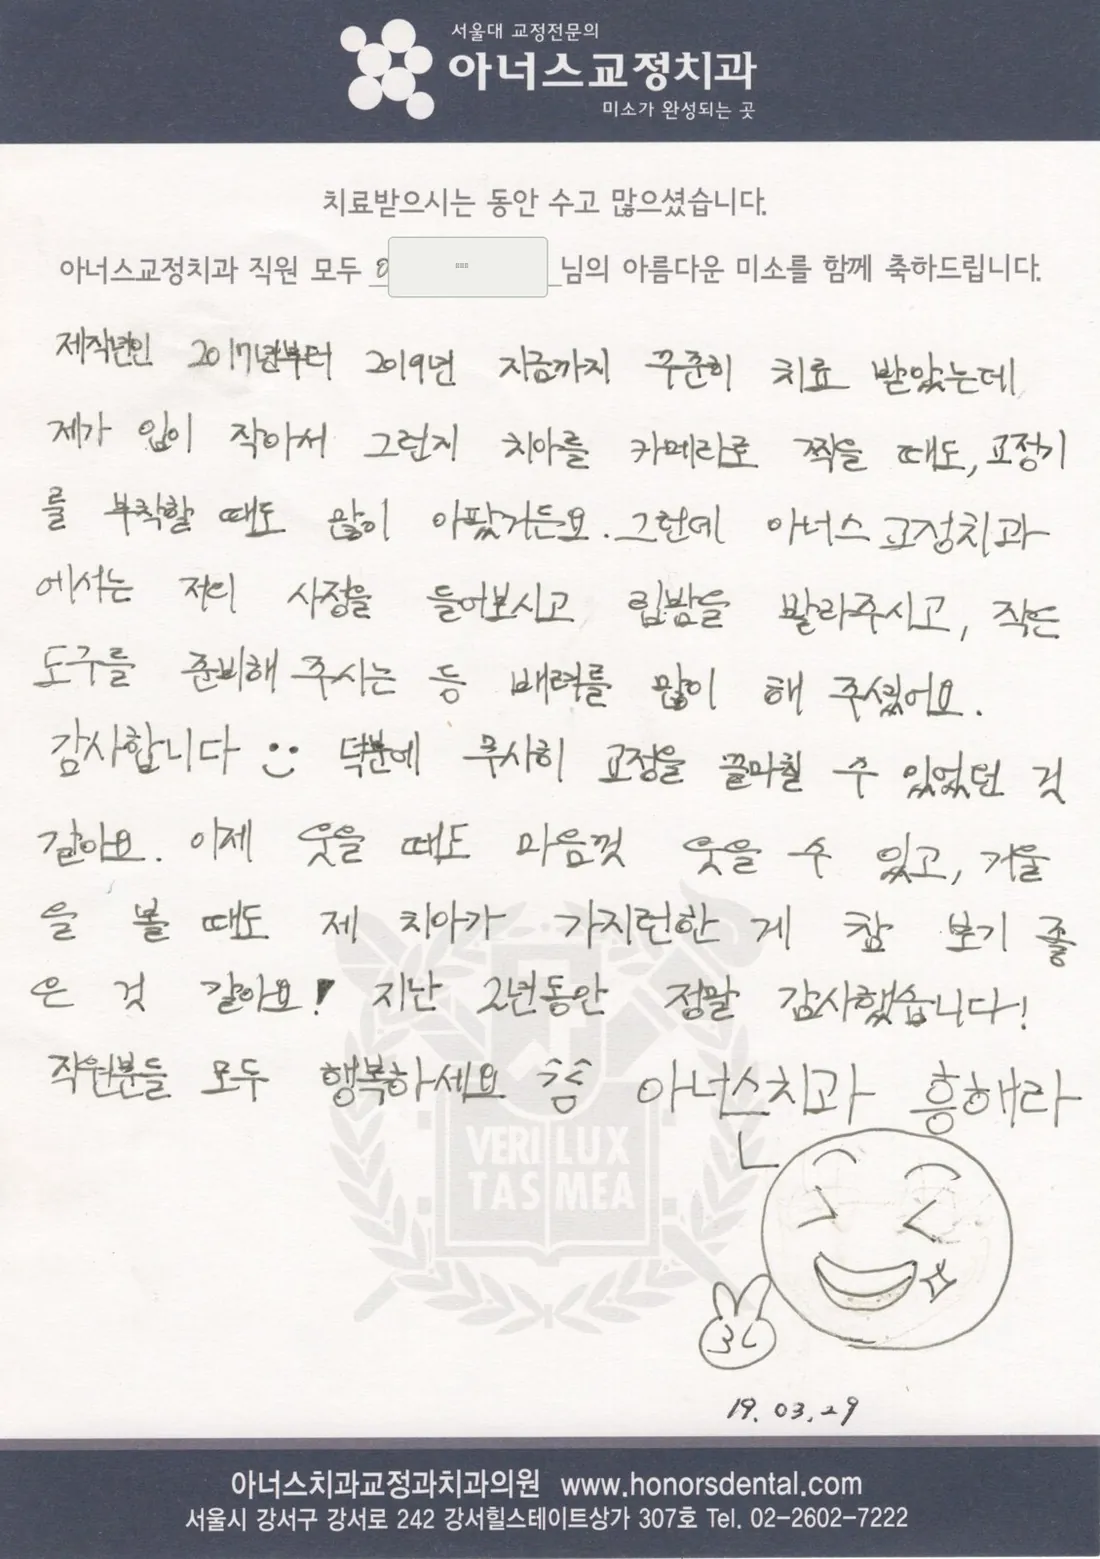 서울대 교정전문의
아너스교정치과
미소가 완성되는 곳
치료받으시는 동안 수고 많으셨습니다.
아너스교정치과 직원 모두 님의 아름다운 미소를 함께 축하드립니다.
제작년인 2017년부터 2019년 지금까지 꾸준히 치료 받았는데
제가 입이 작아서 그런지 치아를 카메라로 찍을 때도, 교정기
를 부착할 때도 많이 아팠거든요. 그런데 아너스 교정치과
에서는 저의 사정을 들어보시고 립밤을 발라주시고, 작은
도구를 준비해 주시는 등 배려를 많이 해 주셨어요.
감사합니다 덕분에 무사히 교정을 끝마칠 수 있었던 것
같아요. 이제 웃을 때도 마음껏 웃을 수 있고, 거울
을 볼 때도 제 치아가 가지런한 게 참 보기 좋
은 것 같아요! 지난 2년동안 정말 감사했습니다!
직원분들 모두 행복하세요 아너스치과 흥해라
VERI LUX
TAS MEA
19. 03. 29
아너스치과교정과치과의원 www.honorsdental.com
서울시 강서구 강서로 242 강서힐스테이트상가 307호 Tel. 02-2602-7222